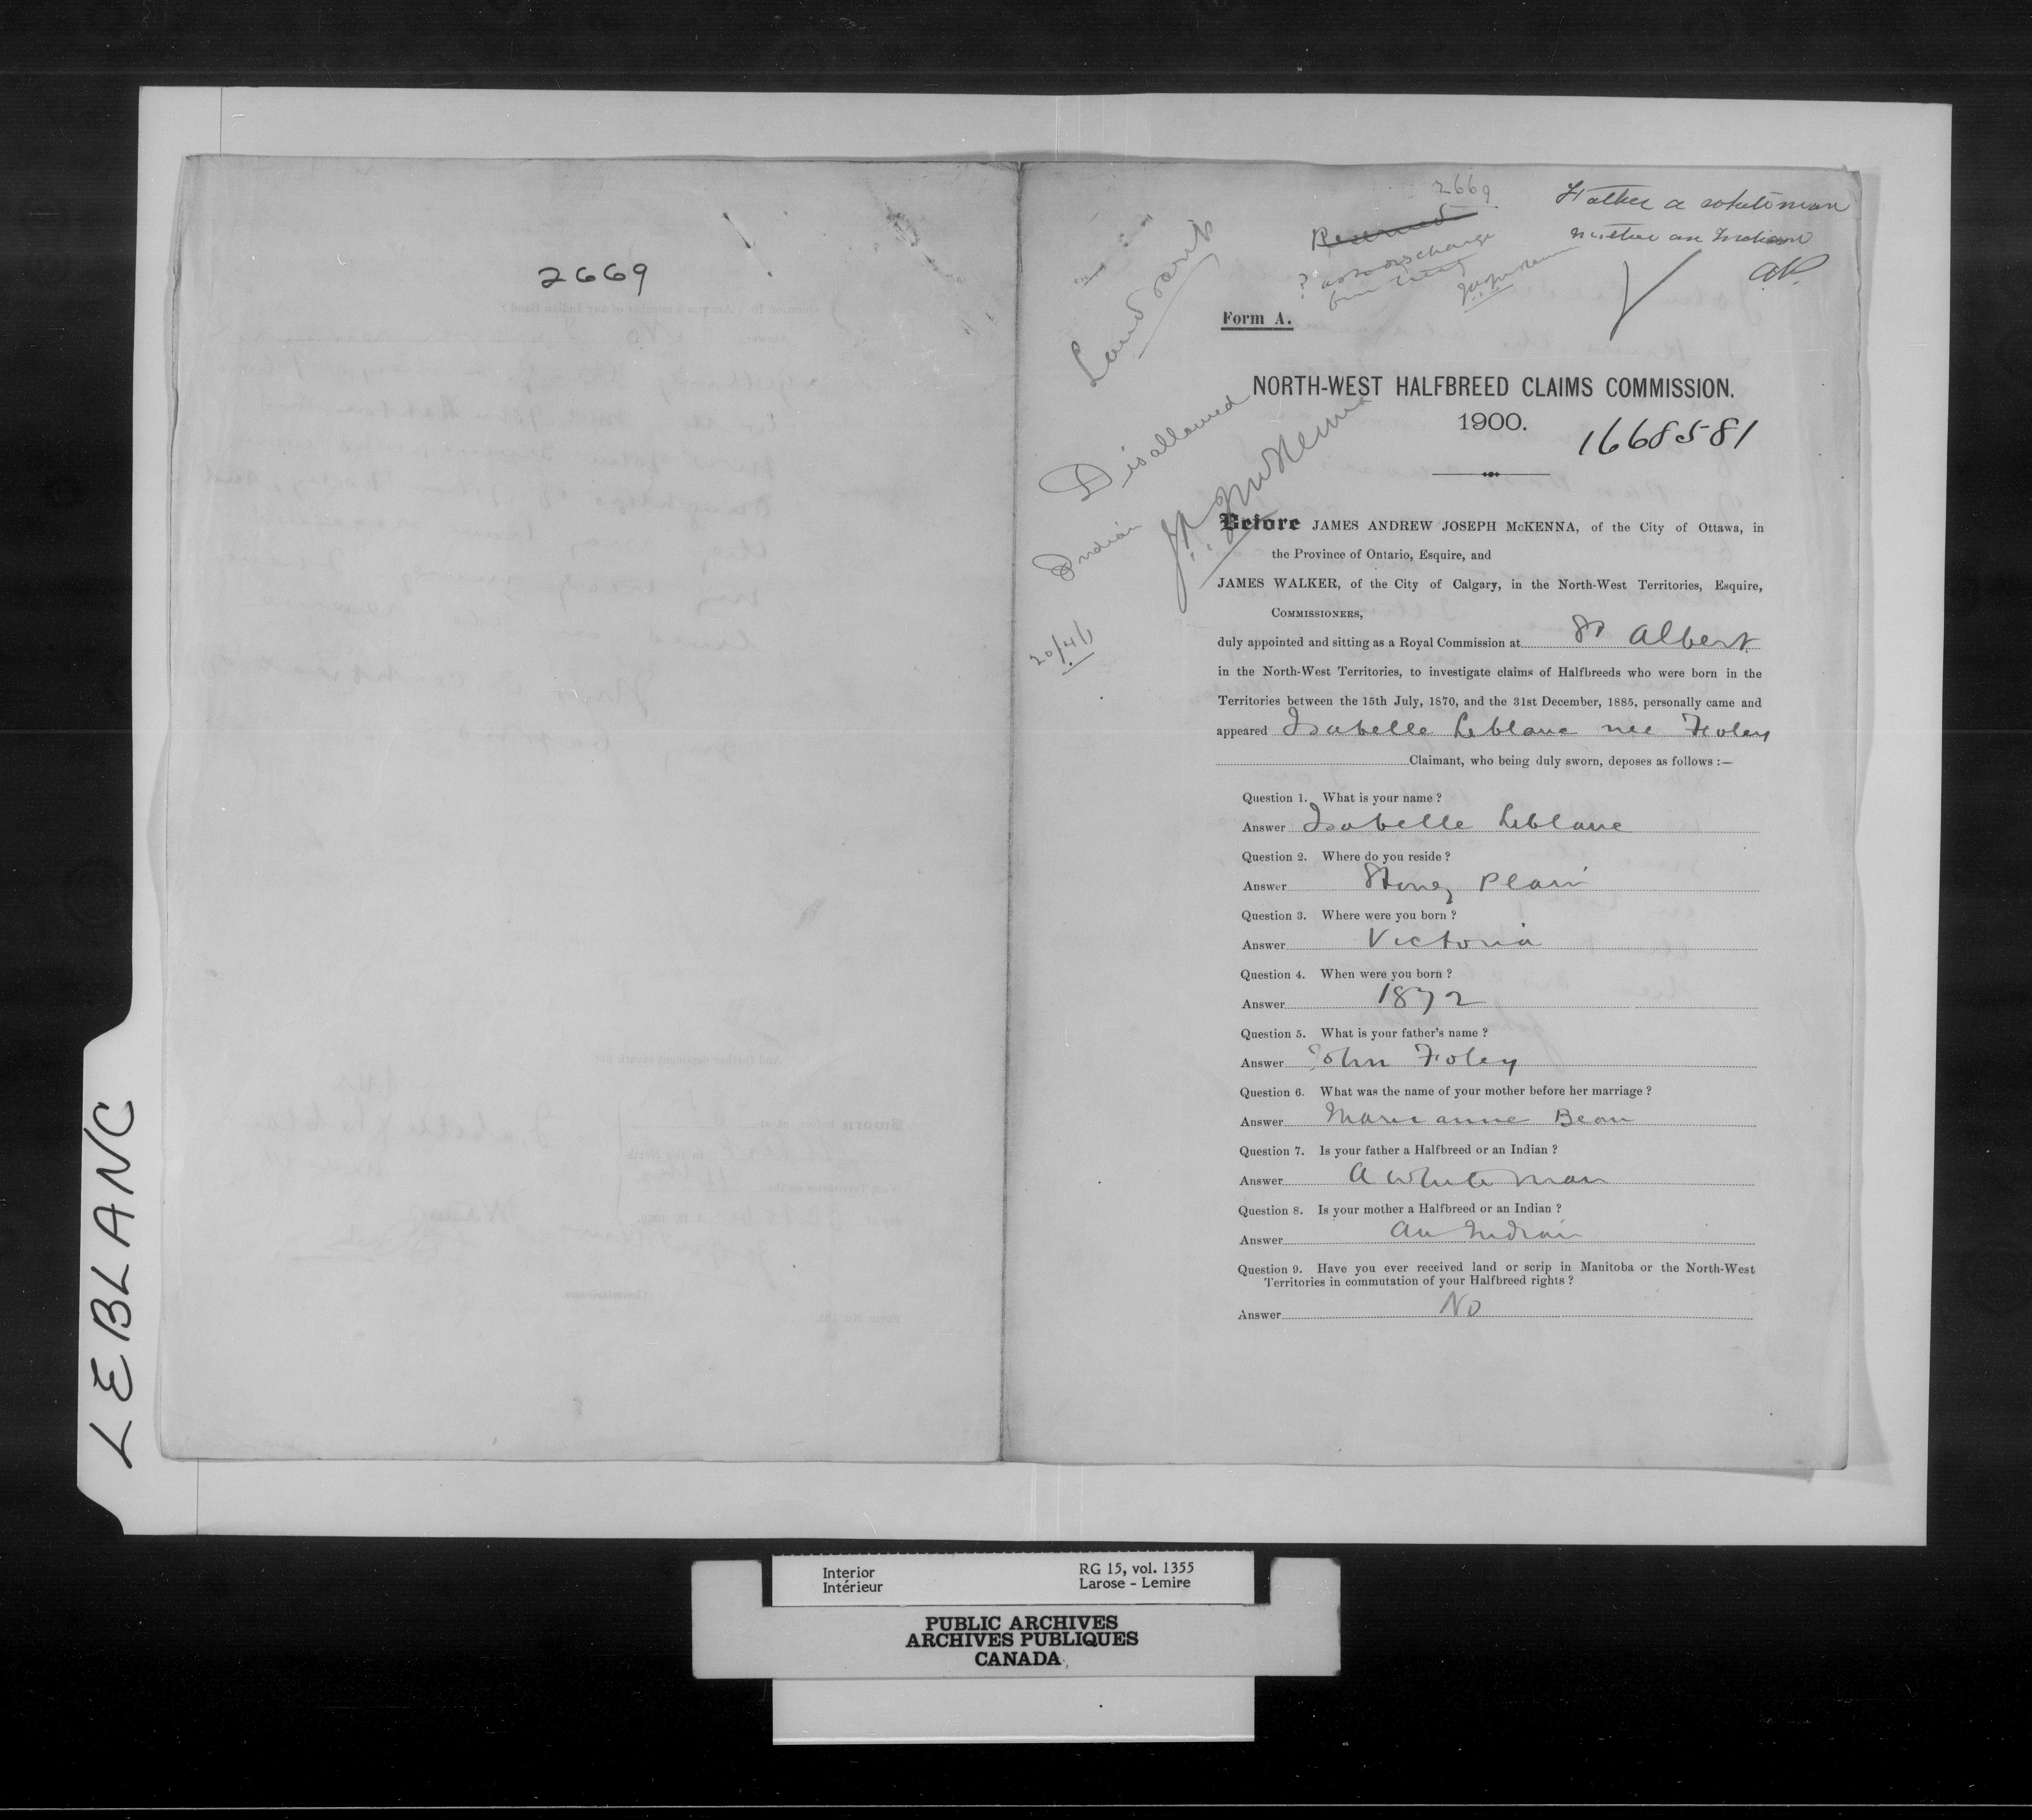 2669
LEBLANC
2669
Father a whiteman
mother an Indian
Reserved
? as to discharge
from treaty
Land scrip
Form A.
NORTH-WEST HALFBREED CLAIMS COMMISSION.
1900.
1668581
Disallowed
Indian
J.A.J. McKenna
20/4/1
Before JAMES ANDREW JOSEPH McKENNA, of the City of Ottawa, in
the Province of Ontario, Esquire, and
JAMES WALKER, of the City of Calgary, in the North-West Territories, Esquire,
COMMISSIONERS,
duly appointed and sitting as a Royal Commission at St Albert
in the North-West Territories, to investigate claims of Halfbreeds who were born in the
Territories between the 15th July, 1870, and the 31st December, 1885, personally came and
appeared Isabelle Leblanc nee Foley
Claimant, who being duly sworn, deposes as follows :—
Question 1. What is your name ?
Answer Isabelle Leblanc
Question 2. Where do you reside ?
Answer Stony Plain
Question 3. Where were you born ?
Answer Victoria
Question 4. When were you born ?
Answer 1872
Question 5. What is your father's name ?
Answer John Foley
Question 6. What was the name of your mother before her marriage ?
Answer Marianne Bean
Question 7. Is your father a Halfbreed or an Indian ?
Answer A white man
Question 8. Is your mother a Halfbreed or an Indian ?
Answer An Indian
Question 9. Have you ever received land or scrip in Manitoba or the North-West
Territories in commutation of your Halfbreed rights ?
Answer No
Interior
Intérieur
RG 15, vol. 1355
Larose - Lemire
PUBLIC ARCHIVES
ARCHIVES PUBLIQUES
CANADA